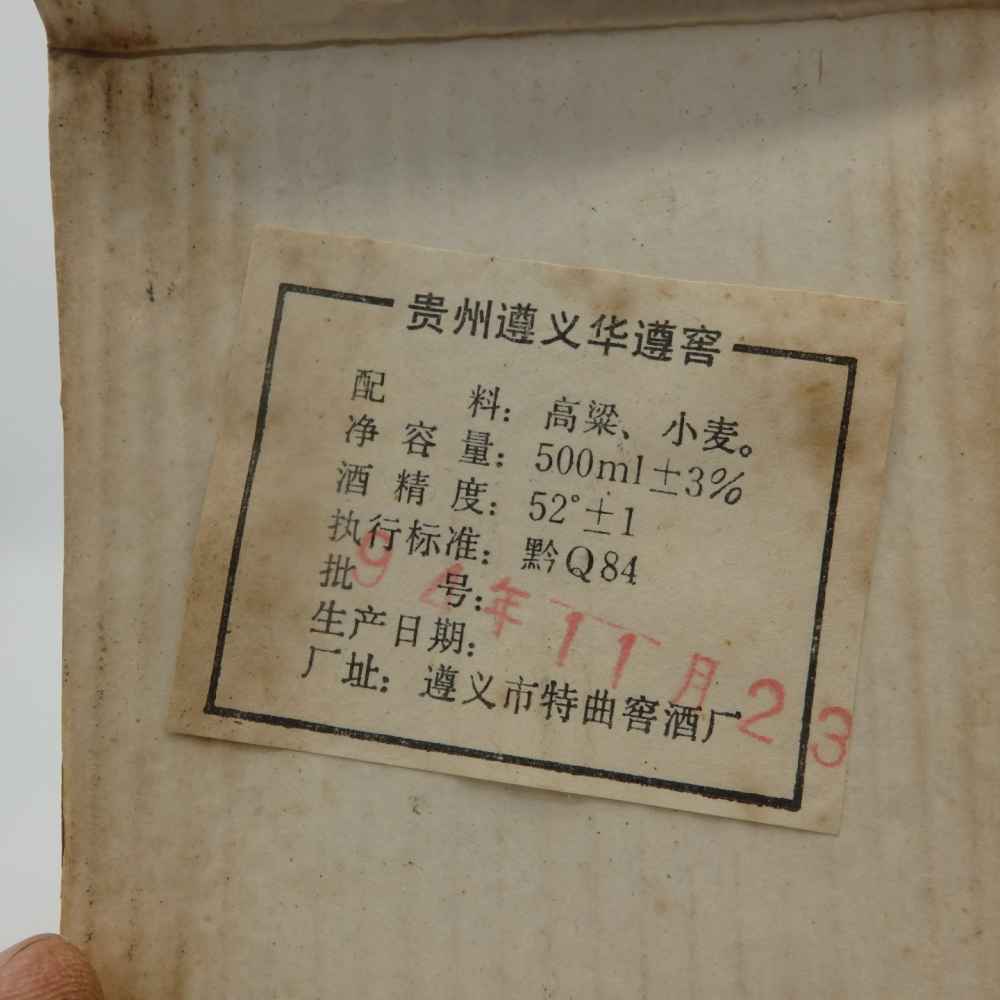 贵州遵义华遵窖
配 料：高粱、小麦。
净容量：500ml±3%
酒精度：52°±1
执行标准：黔Q84
批 号：
生产日期：
94年11月23
厂址：遵义市特曲窖酒厂